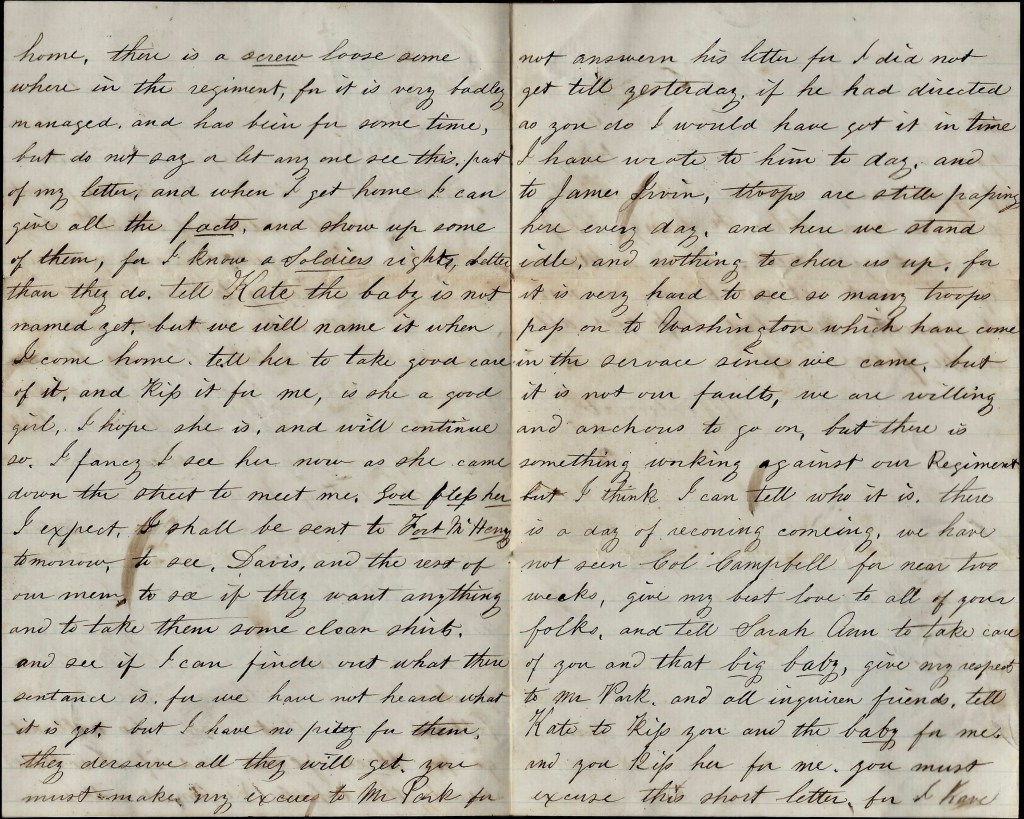 home, there is a screw loose some
where in the regiment, for it is very badley
managed. and has bein for some time,
but do not say or let any one see this, part
of my letter, and when I get home I can
give all the facts. and show up some
of them, for I know a Soldiers rights, better
than they do. tell Kate the baby is not
named yet. but we will name it when
I come home. tell her to take good care
of it, and Kiss it for me, is she a good
girl, I hope she is, and will continue
so. I fancy I see her now as she came
down the street to meet me. God bless her
I expect, I shall be sent to Fort McHenry
tomorrow, to see, Davis, and the rest of
our mem, to see if they want anything
and to take them some clean shirts.
and see if I can finde out what there
sentance is. for we have not heard what
it is yet. but I have no pitey for them.
they derserve all they will get. you
must make my excues to Mr Park for
not answern his letter for I did not
get till yesterday, if he had directed
as you do I would have got it in time
I have wrote to him to day, and
to James Irvin, troops are still passing
here every day, and here we stand
idle, and nothing to cheer us up, for
it is very hard to see so many troops
pass on to Washington which have come
in the servace since we came, but
it is not our faults, we are willing
and anchous to go on, but there is
something working against our Regiment
but I think I can tell who it is. there
is a day of reconing comeing. we have
not seen Col Campbell for near two
weeks, give my best love to all of your
folks. and tell Sarah Ann to take care
of you and that big baby, give my respect
to Mr Park. and all inquiren friends. tell
Kate to Kiss you and the baby for me.
and you Kiss her for me. you must
excuse this short letter, for I have